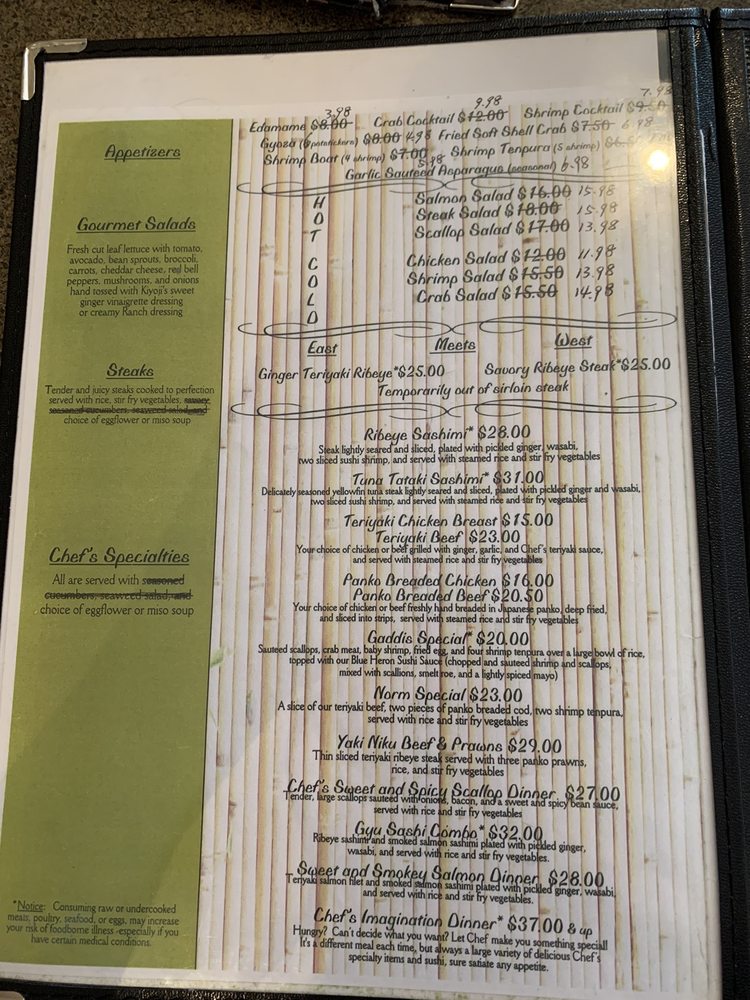 3.98 9.98 7.98
Edamame $8.00 Crab Cocktail $12.00 Shrimp Cocktail $9.50
Gyoza (6 potstickers) $8.00 4.98 Fried Soft Shell Crab $7.50 6.98
Shrimp Boat (4 shrimp) $7.00 5.98 Shrimp Tenpura (5 shrimp)
Garlic Sauteed Asparagus (seasonal) 6.98
Appetizers
Gourmet Salads
Fresh cut leaf lettuce with tomato,
avocado, bean sprouts, broccoli,
carrots, cheddar cheese, red bell
peppers, mushrooms, and onions
hand tossed with Kiyoji's sweet
ginger vinaigrette dressing
or creamy Ranch dressing
HOT
Salmon Salad $16.00 15.98
Steak Salad $18.00 15.98
Scallop Salad $17.00 13.98
COLD
Chicken Salad $12.00 11.98
Shrimp Salad $15.50 13.98
Crab Salad $15.50 14.98
East Meets West
Steaks
Tender and juicy steaks cooked to perfection
served with rice, stir fry vegetables, savory
seasoned cucumbers, seaweed salad, and
choice of eggflower or miso soup
Ginger Teriyaki Ribeye*$25.00 Savory Ribeye Steak*$25.00
Temporarily out of sirloin steak
Chef's Specialties
All are served with seasoned
cucumbers, seaweed salad, and
choice of eggflower or miso soup
Ribeye Sashimi* $28.00
Steak lightly seared and sliced, plated with pickled ginger, wasabi,
two sliced sushi shrimp, and served with steamed rice and stir fry vegetables
Tuna Tataki Sashimi* $31.00
Delicately seasoned yellowfin tuna steak lightly seared and sliced, plated with pickled ginger and wasabi,
two sliced sushi shrimp, and served with steamed rice and stir fry vegetables
Teriyaki Chicken Breast $15.00
Teriyaki Beef $23.00
Your choice of chicken or beef grilled with ginger, garlic, and Chef's teriyaki sauce,
and served with steamed rice and stir fry vegetables
Panko Breaded Chicken $16.00
Panko Breaded Beef $20.50
Your choice of chicken or beef freshly hand breaded in Japanese panko, deep fried,
and sliced into strips, served with steamed rice and stir fry vegetables
Gaddis Special* $20.00
Sauteed scallops, crab meat, baby shrimp, fried egg, and four shrimp tenpura over a large bowl of rice,
topped with our Blue Heron Sushi Sauce (chopped and sauteed shrimp and scallops,
mixed with scallions, smelt roe, and a lightly spiced mayo)
Norm Special $23.00
A slice of our teriyaki beef, two pieces of panko breaded cod, two shrimp tenpura,
served with rice and stir fry vegetables
Yaki Niku Beef & Prawns $29.00
Thin sliced teriyaki ribeye steak served with three panko prawns,
rice, and stir fry vegetables
Chef's Sweet and Spicy Scallop Dinner $27.00
Tender, large scallops sauteed with onions, bacon, and a sweet and spicy bean sauce,
served with rice and stir fry vegetables
Gyu Sashi Combo* $32.00
Ribeye sashimi and smoked salmon sashimi plated with pickled ginger,
wasabi, and served with rice and stir fry vegetables.
Sweet and Smokey Salmon Dinner $28.00
Teriyaki salmon filet and smoked salmon sashimi plated with pickled ginger, wasabi,
and served with rice and stir fry vegetables.
Chef's Imagination Dinner* $37.00 & up
Hungry? Can't decide what you want? Let Chef make you something special!
It's a different meal each time, but always a large variety of delicious Chef's
specialty items and sushi, sure satiate any appetite.
*Notice: Consuming raw or undercooked
meats, poultry, seafood, or eggs, may increase
your risk of foodborne illness -especially if you
have certain medical conditions.